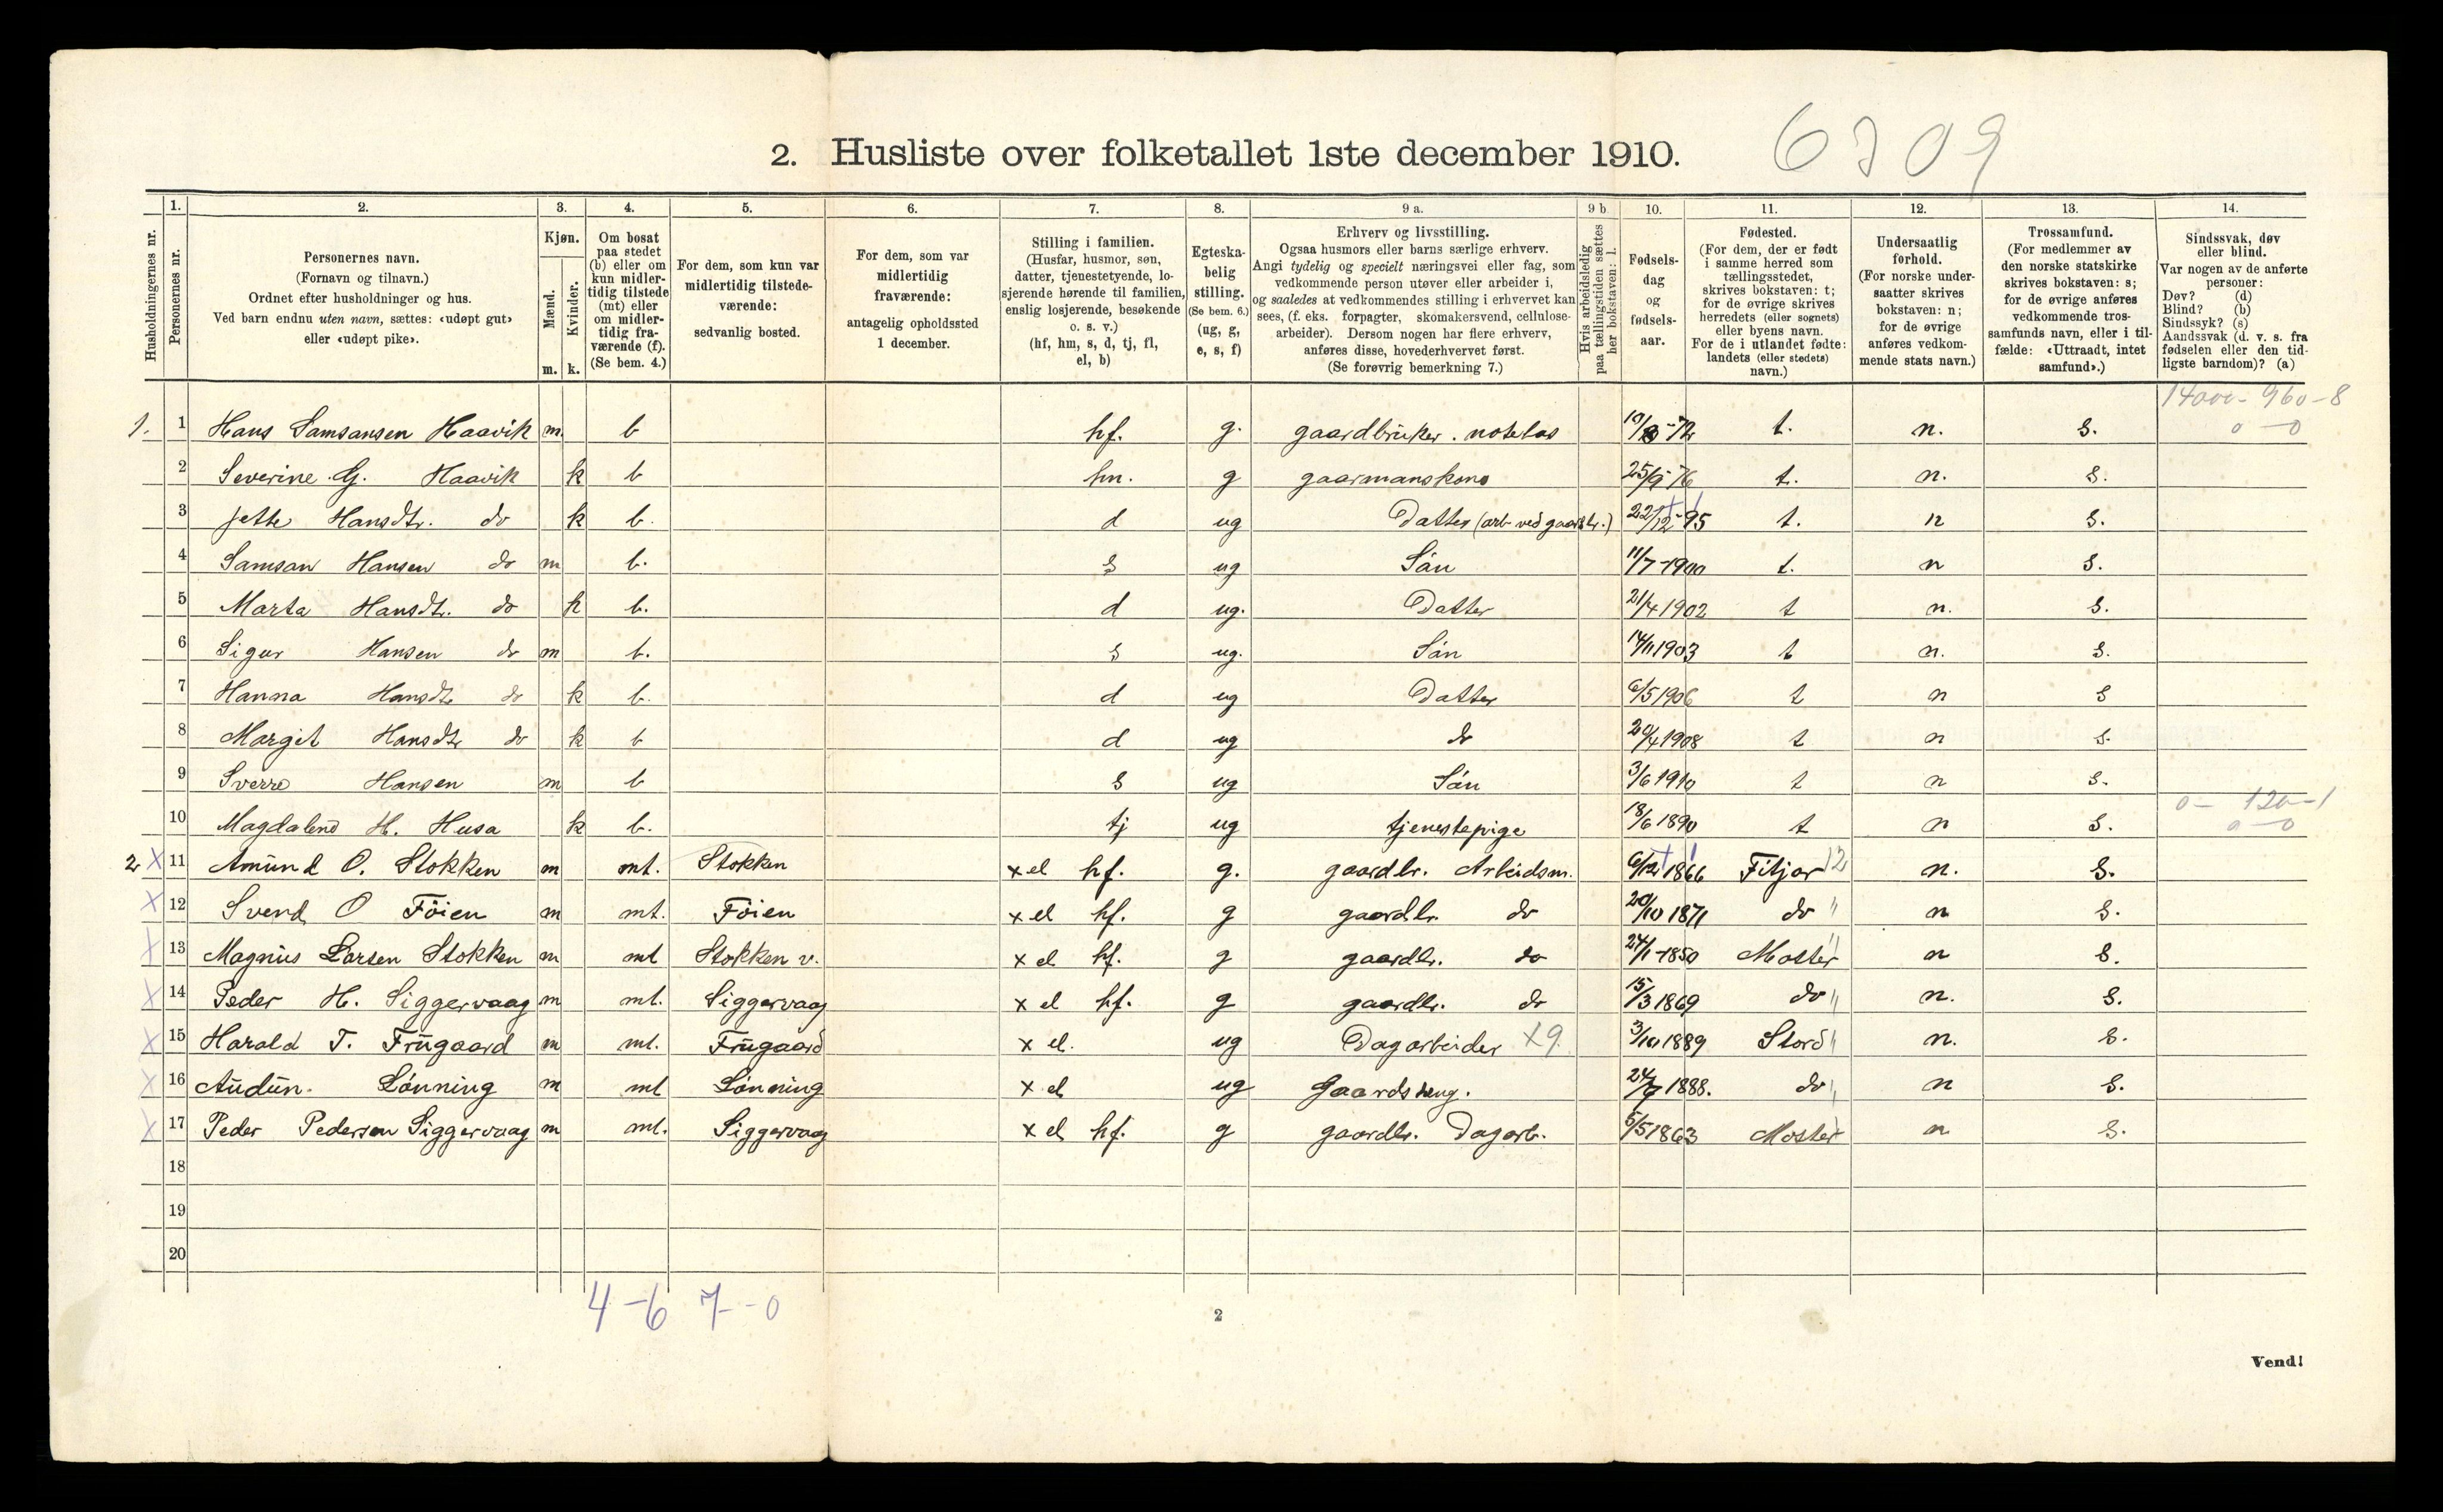 6209
2. Husliste over folketallet 1ste december 1910.
1. 2. 3. 4. 5. 6. 7. 8. 9 a. 9 b 10. 11. 12. 13. 14.
Husholdningernes nr.
Personernes nr.
Personernes navn.
(Fornavn og tilnavn.)
Ordnet efter husholdninger og hus.
Ved barn endnu uten navn, sættes: «udøpt gut»
eller «udøpt pike».
Kjøn.
Mænd.
Kvinder.
m. k.
Om bosat
paa stedet
(b) eller om
kun midler-
tidig tilstede
(mt) eller
om midler-
tidig fra-
værende (f).
(Se bem. 4.)
For dem, som kun var
midlertidig tilstede-
værende:
sedvanlig bosted.
For dem, som var
midlertidig
fraværende:
antagelig opholdssted
1 december.
Stilling i familien.
(Husfar, husmor, søn,
datter, tjenestetyende, lo-
sjerende hørende til familien,
enslig losjerende, besøkende
o. s. v.)
(hf, hm, s, d, tj, fl,
el, b)
Egteska-
belig
stilling.
(Se bem. 6.)
(ug, g,
e, s, f)
Erhverv og livsstilling.
Ogsaa husmors eller barns særlige erhverv.
Angi tydelig og specielt næringsvei eller fag, som
vedkommende person utøver eller arbeider i,
og saaledes at vedkommendes stilling i erhvervet kan
sees, (f. eks. forpagter, skomakersvend, cellulose-
arbeider). Dersom nogen har flere erhverv,
anføres disse, hovederhvervet først.
(Se forøvrig bemerkning 7.)
Hvis arbeidsledig
paa tællingstiden sættes
her bokstaven: l.
Fødsels-
dag
og
fødsels-
aar.
Fødested.
(For dem, der er født
i samme herred som
tællingsstedet,
skrives bokstaven: t;
for de øvrige skrives
herredets (eller sognets)
eller byens navn.
For de i utlandet fødte:
landets (eller stedets)
navn.)
Undersaatlig
forhold.
(For norske under-
saatter skrives
bokstaven: n;
for de øvrige
anføres vedkom-
mende stats navn.)
Trossamfund.
(For medlemmer av
den norske statskirke
skrives bokstaven: s;
for de øvrige anføres
vedkommende tros-
samfunds navn, eller i til-
fælde: «Uttraadt, intet
samfund».)
Sindssvak, døv
eller blind.
Var nogen av de anførte
personer:
Døv? (d)
Blind? (b)
Sindssyk? (s)
Aandssvak (d. v. s. fra
fødselen eller den tid-
ligste barndom)? (a)
1400 - 960 - 8
0 - 0
1. 1 Hans Samsansen Haavik m. b hf. g. gaardbruker. notebas 10/8-72 t. n. s.
2 Severine G. Haavik k b hm. g gaarmanskone 25/9 76 t. n. s.
3 Jette Hansdtr. do k b. d ug Datter (arb ved gaardsbr.) 22/12-95 t. n s.
4 Samsan Hansen do m b. s ug Sön 11/7-1900 t. n s.
5 Marta Hansdtr. do k b. d ug. Datter 21/4 1902 t n. s.
6 Sigur Hansen do m b. s ug. Sön 14/11 1903 t n. s.
7 Hanna Hansdtr do k b. d ug Datter 6/5 1906 t n s
8 Margit Hansdtr do k b d ug do 20/4 1908 t n s.
9 Sverre Hansen m b s ug Sön 3/6 1910 t n s.
0 - 120 - 1
0 - 0
10 Magdalene H. Husa k b. tj ug tjenestepige 18/6 1890 t n s.
2 x 11 Amund O. Stokken m mt. Stokken x el hf. g. gaardbr. Arbeidsm. 6/12 1866 Fitjar 12 n. s.
x 12 Svend O Föien m mt. Föien x el hf. g gaardbr. do 20/10 1871 do " n s.
x 13 Magnus Larsen Stokken m mt Stokken v. x el hf. g gaardbr. do 24/1-1850 Moster " n s.
x 14 Peder H. Siggervaag m mt. Siggervaag x el hf. g gaardbr. do 15/3 1869 do " n. s.
x 15 Harald T. Frugaard m mt. Frugaard x el. ug Dagarbeider x9. 3/10 1889 Stord " n. s.
x 16 Audun. Lönning m mt Lönning x el ug Gaardsdreng. 24/7 1888. do " n s.
x 17 Peder Pedersen Siggervaag m mt. Siggervaag x el hf. g gaardbr. Dagarb. 5/5 1863 Moster n s.
18
19
20
4-6 7-0
2
Vend!